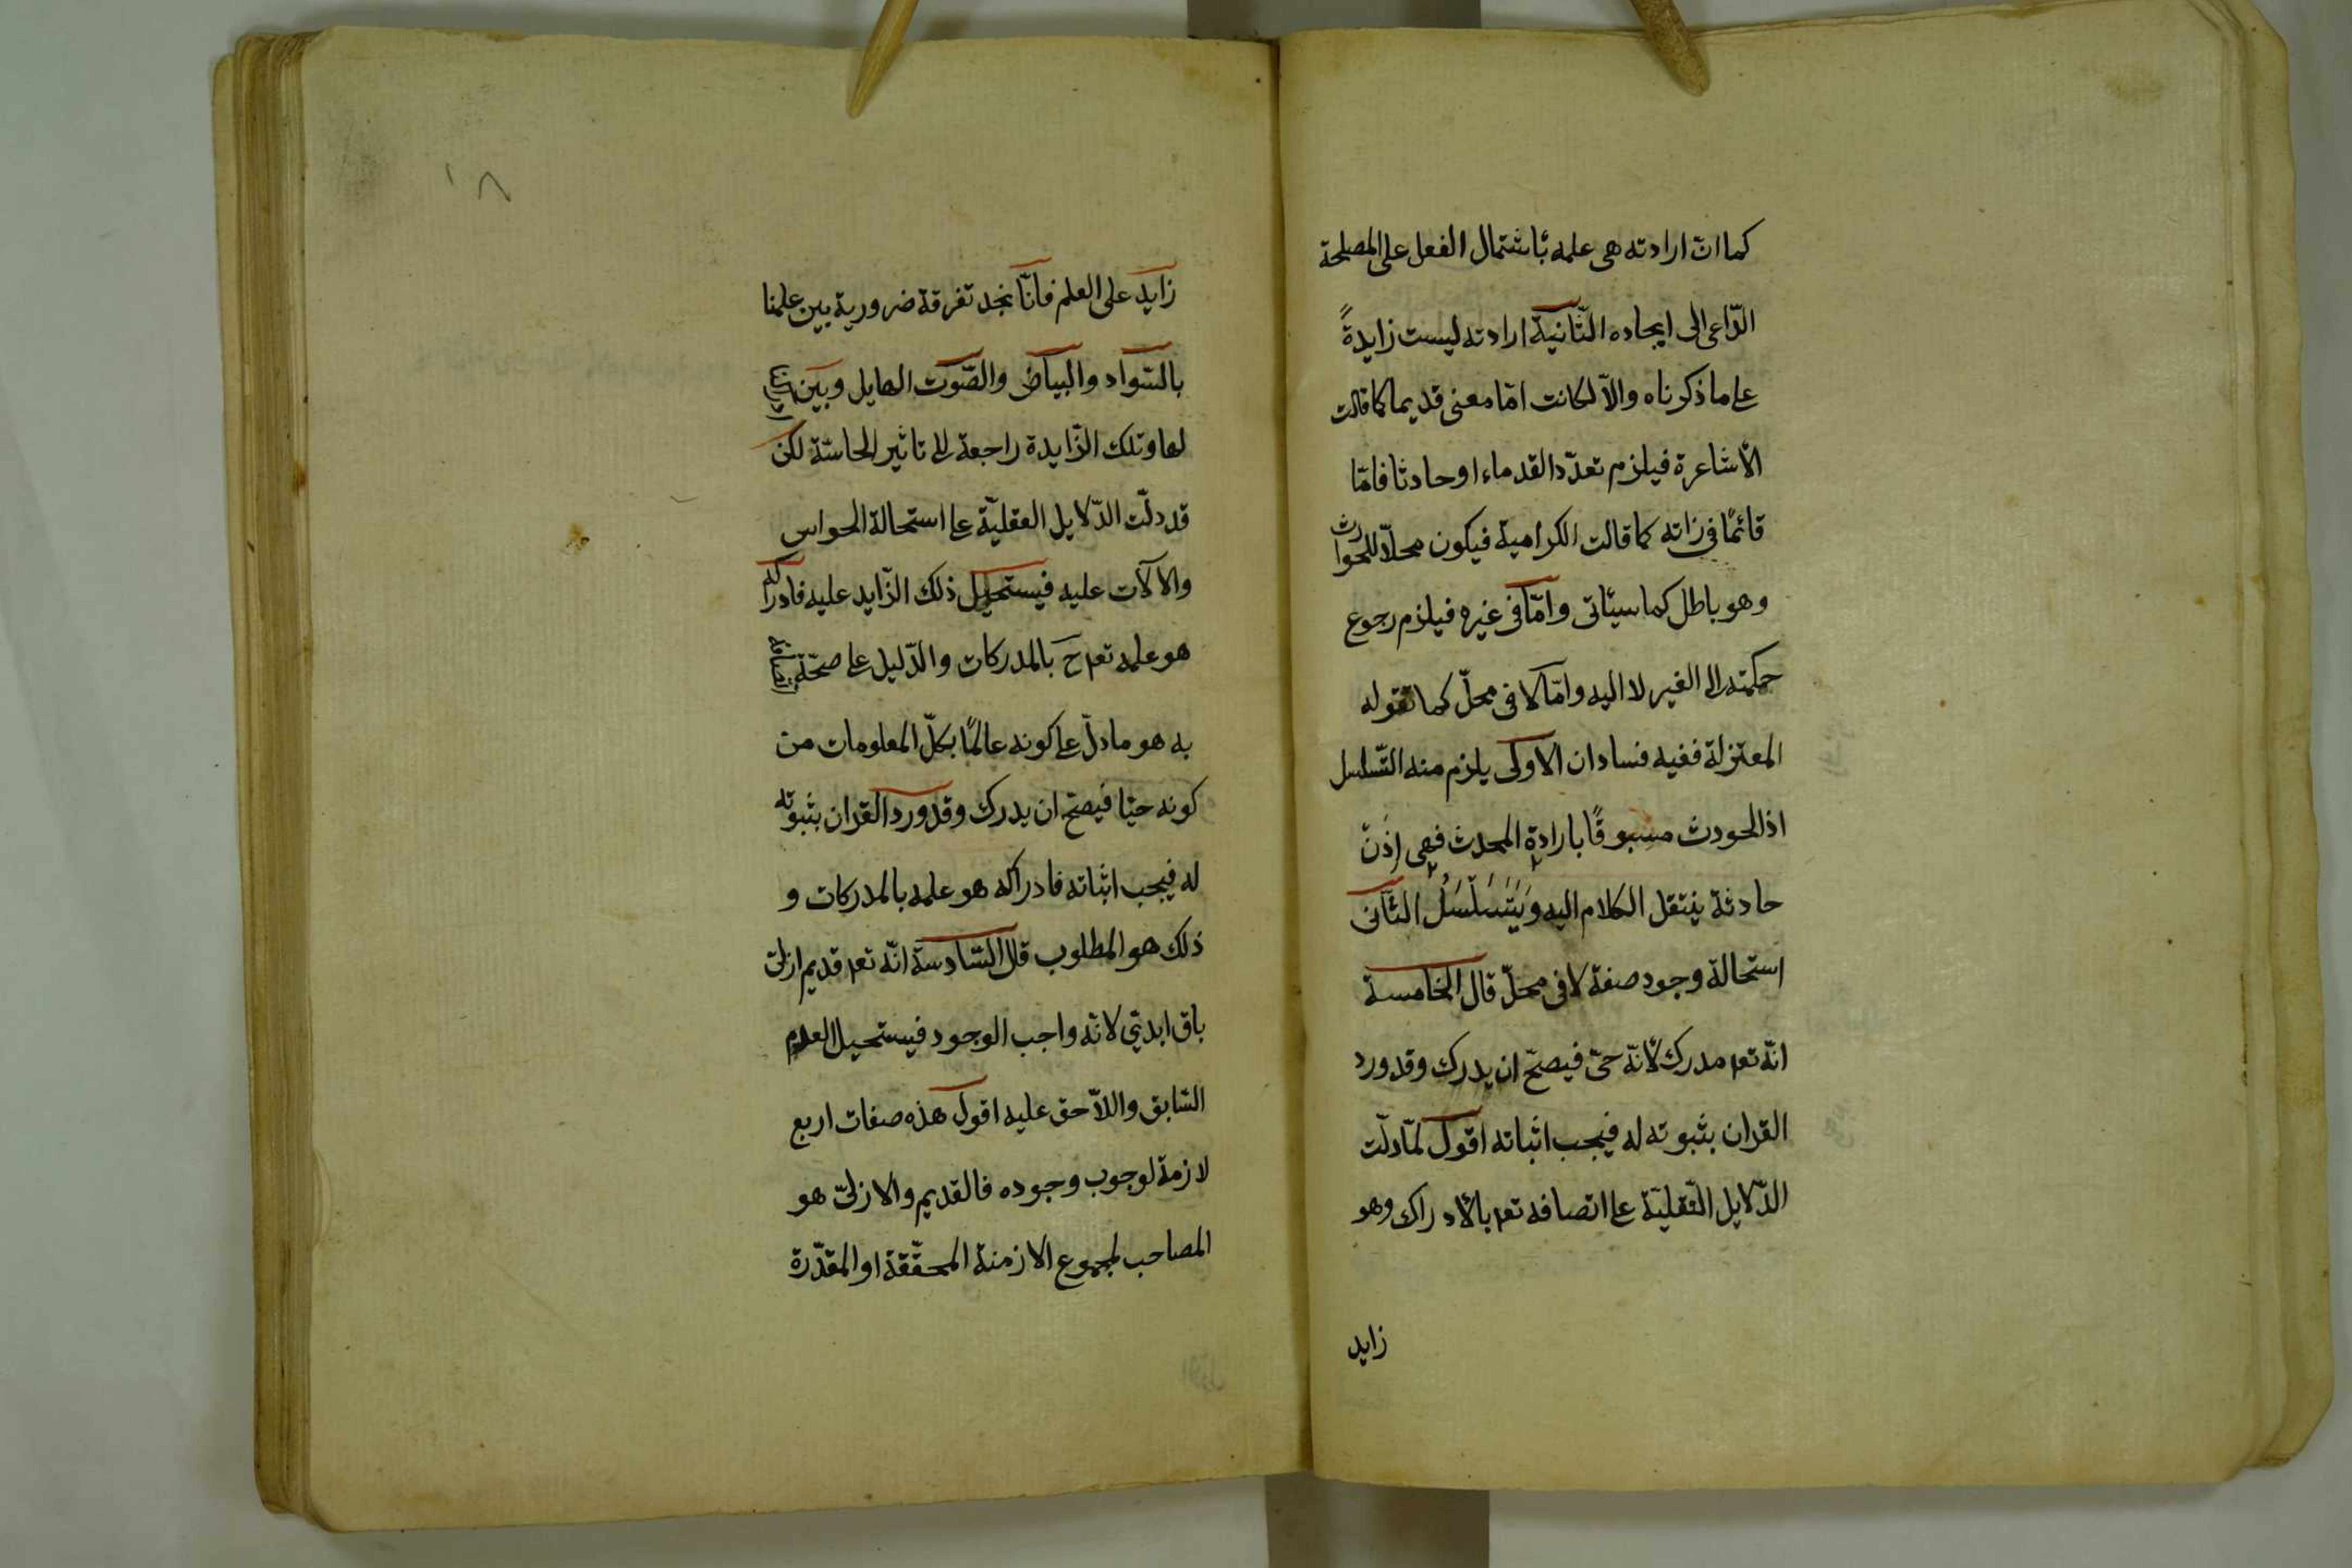 كما انّ ارادته هى علمه بأشتمال الفعل على المصلحة
الدّاعى الى ايجاده الثّانية ارادته ليست زايدةً
على ما ذكرناه والّا لكانت امّا معنى قديما كما قالت
الأشاعرة فيلزم تعدّد القدماء او حادثا فامّا
قائمًا فى ذاته كما قالت الكرامية فيكون محلّا للحوادث
وهو باطل كما سيأتى وامّا فى غيره فيلزم رجوع
حكمته الى الغير لا اليه وامّا لا فى محلّ كما تقوله
المعتزلة ففيه فسادان الاولى يلزم منه التّسلسل
اذ الحودث مسبوقًا بارادة المحدث فهى اِذَنْ
حادثة ينتقل الكلام اليه وَيَتَسَلْسَلُ الثّانى
استحالة وجود صفة لا فى محلّ قال الخامسة
انّه تعم مدرك لأنّه حىّ فيصحّ ان يدرك وقد ورد
القران بثبوته له فيجب اثباته اقول لمّا دلّت
الدّلايل النّقليّة على اتصافه تعم بالأدراك وهو
زايد
١٨
زايد على العلم فانّا نجد تفرقة ضرورية بين علمنا
بالسّواد والبياض والصّوت الهايل وبين
لها وتلك الزّايدة راجعة الى تاثير الحاسّة لكن
قد دلّت الدّلايل العقليّة على استحالة الحواس
والالآت عليه فيستحيل ذلك الزّايد عليه فادراكه
هو علمه تعم ح بالمدركات والدّليل على صحّة
به هو ما دلّ على كونه عالمًا بكلّ المعلومات من
كونه حيّا فيصحّ ان يدرك وقد ورد القران بثبوته
له فيجب اثباته فادراكه هو علمه بالمدركات و
ذلك هو المطلوب قال السّادسة انّه تعم قديم ازلىّ
باق ابدىّ لانّه واجب الوجود فيستحيل العدم
السّابق واللّاحق عليه اقول هذه صفات اربع
لازمة لوجوب وجوده فالقديم والازلىّ هو
المصاحب لمجموع الازمنة المحقّقة او المقدّرة